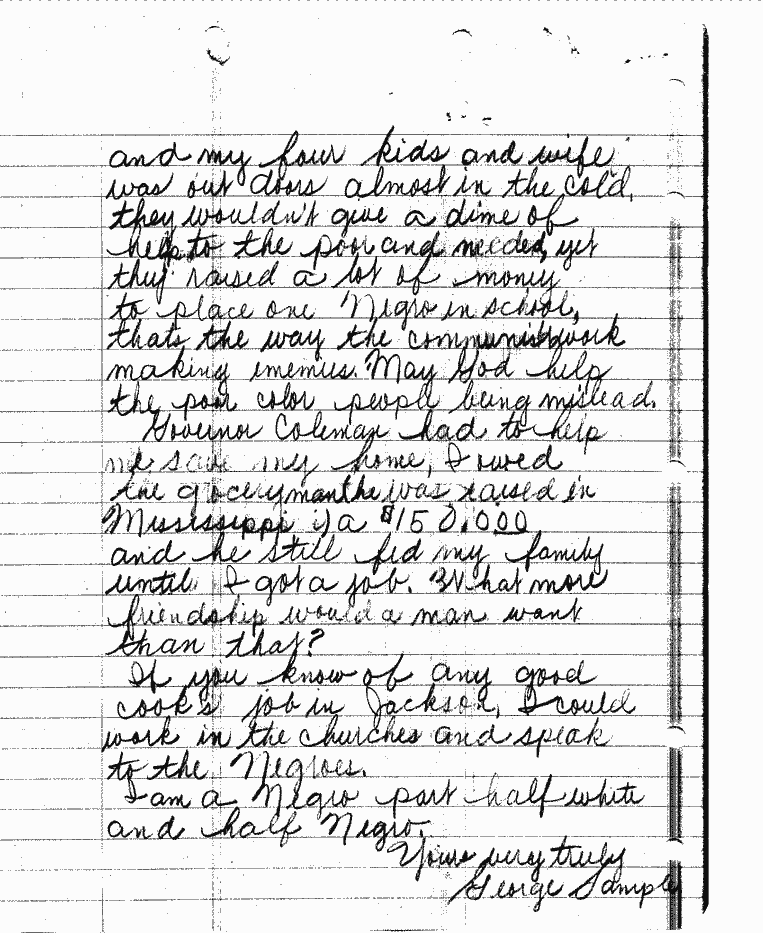 and my four kids and wife
was out doors almost in the cold,
they wouldn't give a dime of
help to the poor and needed, yet
they raised a lot of money
to place one Negro in school,
thats the way the communist work
making enemies. May God help
the poor color people being mislead.
Governor Coleman had to help
me save my home, I owed
the groceryman the was raised in
Mississippi $150.00
and he still fed my family
until I got a job. What more
friendship would a man want
than that?
If you know of any good
cook's job in Jackson, I could
work in the churches and speak
to the Negroes.
I am a Negro part half white
and half Negro.
Yours very truly
George Sample